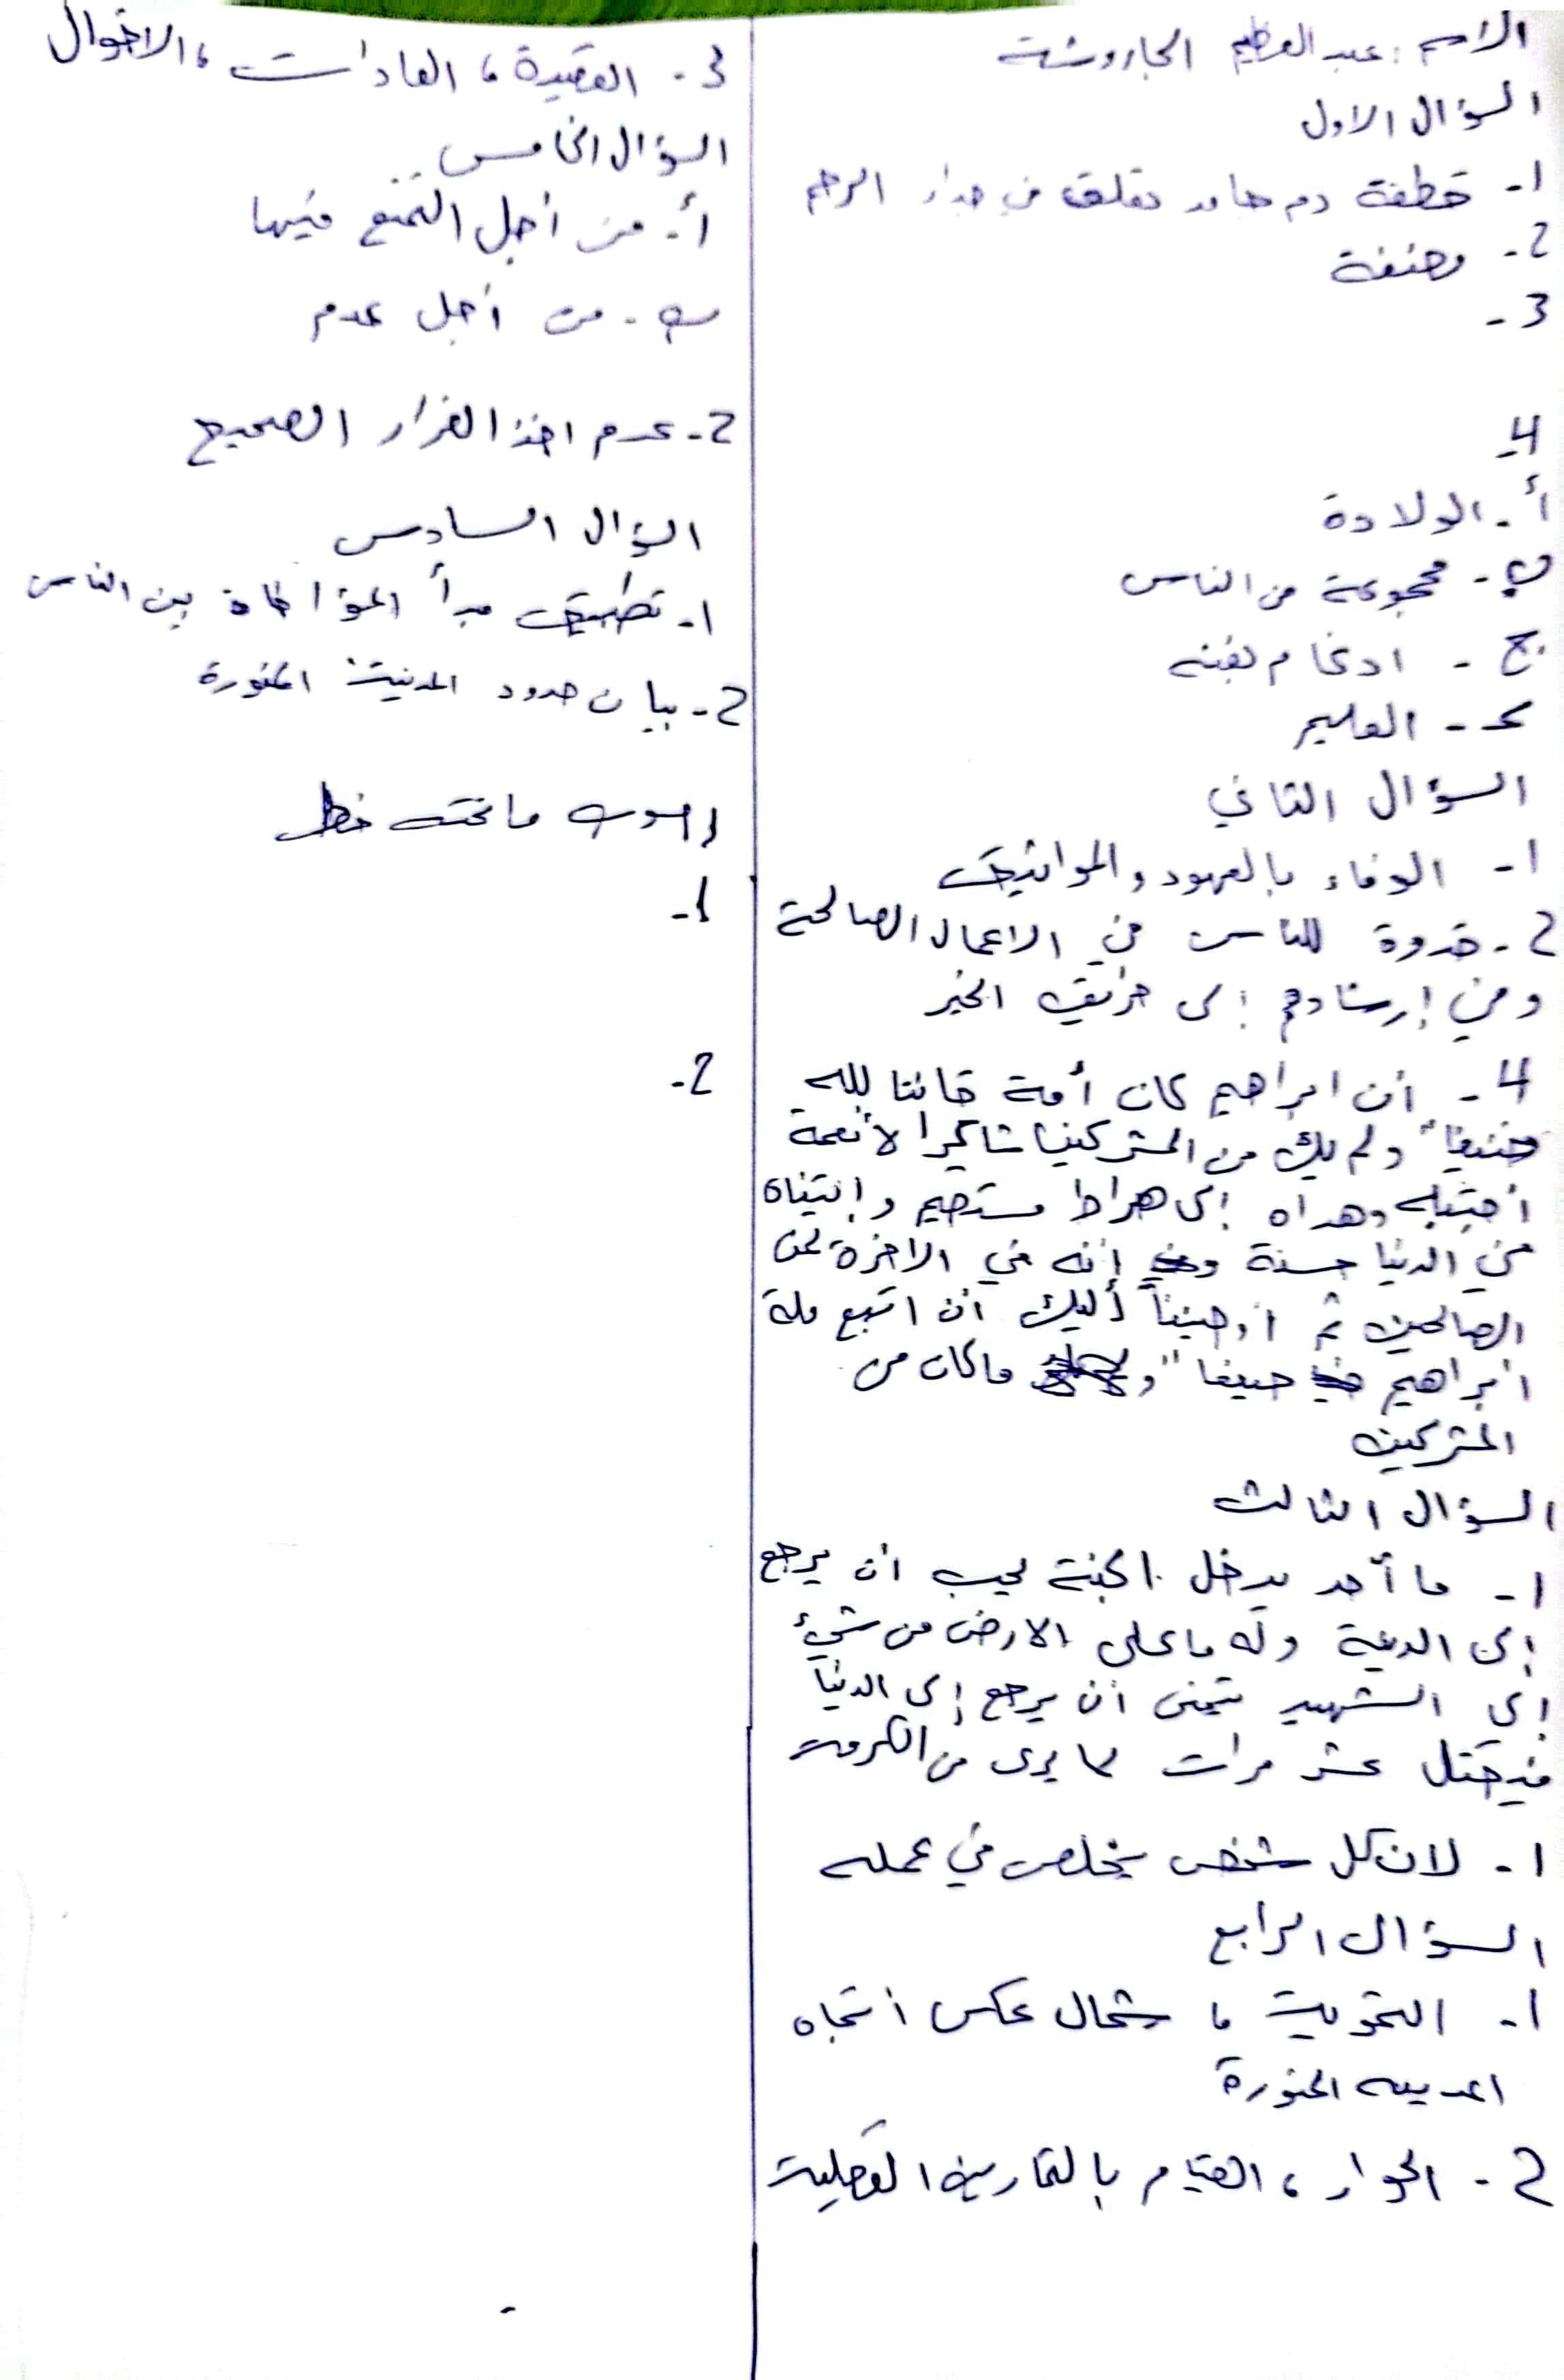 الاسم : عبد العظيم الجاروشة
السؤال الاول
1- قطعة دم جامد تعلق في جدار الرحم
2- مضغة
3-
4-
أ- الولادة
ب- مجموعة من الناس
ج- ادغام بغنه
د- العليم
السؤال الثاني
1- الوفاء بالعهود والمواثيق
2- قدوة للناس في الاعمال الصالحة
وفي إرشادهم إلى طريق الخير
4- أن ابراهيم كان أمة قانتا لله
حنيفا" ولم يك من المشركين شاكرا لأنعمة
أجتبله وهداه إلى صراط مستقيم وا تيناه
في الدنيا حسنة و إنه في الاخرة لمن
الصالحين ثم أوحينا أليك أن اتبع ملة
ابراهيم حنيفا" و ما كان من
المشركين
السؤال الثالث
1- ما أحد يدخل الجنة يحب ان يرجع
إلى الدنية وله ما على الارض من شيئ
إلى الشهيد يتمنى أن يرجع إلى الدنيا
فيقتل عشر مرات لما يرى من الكرمة
1- لان كل شخص يخلص في عمله
السؤال الرابع
1- ، شمال عكس اتجاه
المدينه المنورة
2- الحوار ، القيام بالتمارين العملية
3- العقيدة ، العادات ، الاخوال
السؤال الخامس
أ- من أجل التمتع فيها
ب- من أجل عدم
2- عدم اخذ القرار الصحيح
السؤال السادس
1- تطبيق مبدأ المؤاخاة بين الناس
2- بيان حدود المدينة المنورة
اصوب ما تحته خط
1-
2-